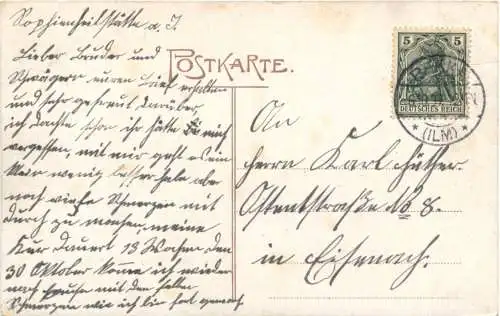 Sophienheilstätte a. I.
Lieber Bruder und
Schwägerin euren Brief erhalten
und sehr gefreut darüber
ich dachte schon ihr hätte Sie mich
vergessen, mit mir geht es ein
klein wenig besser habe aber
noch viele Schmerzen mit
durch zu machen, meine
Kur dauert 13 Wochen, den
30 Oktober komme ich wieder
nach hause mit den selben
Schmerzen wie ich hin hat gemacht
POSTKARTE.
5 5
DEUTSCHES REICH
* (ILM) *
An
Herrn Karl
No 8.
in Eisenach.